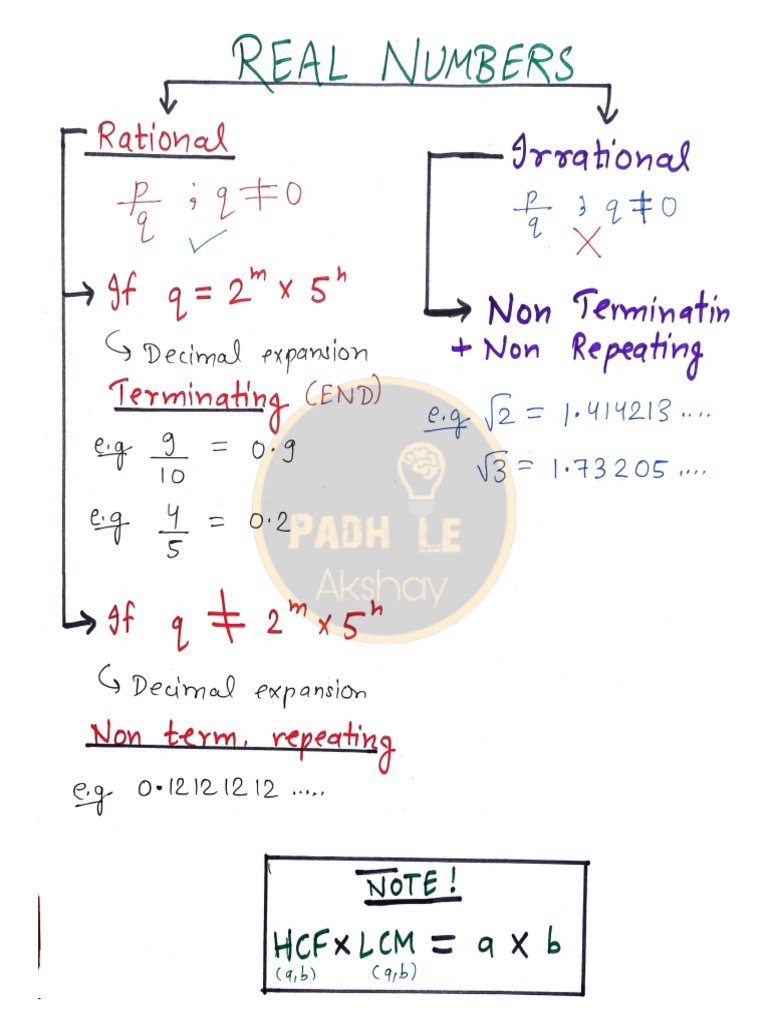 REAL NUMBERS
Rational
p/q ; q ≠ 0
✓
If q = 2^m × 5^n
Decimal expansion
Terminating (END)
e.g 9/10 = 0.9
e.g 4/5 = 0.2
If q ≠ 2^m × 5^n
Decimal expansion
Non term. repeating
e.g 0.12121212 .....
Irrational
p/q ; q ≠ 0
X
Non Terminatin
+ Non Repeating
e.g √2 = 1.414213 ....
√3 = 1.73205 ....
PADH LE
Akshay
NOTE!
HCF × LCM = a × b
(a,b) (a,b)